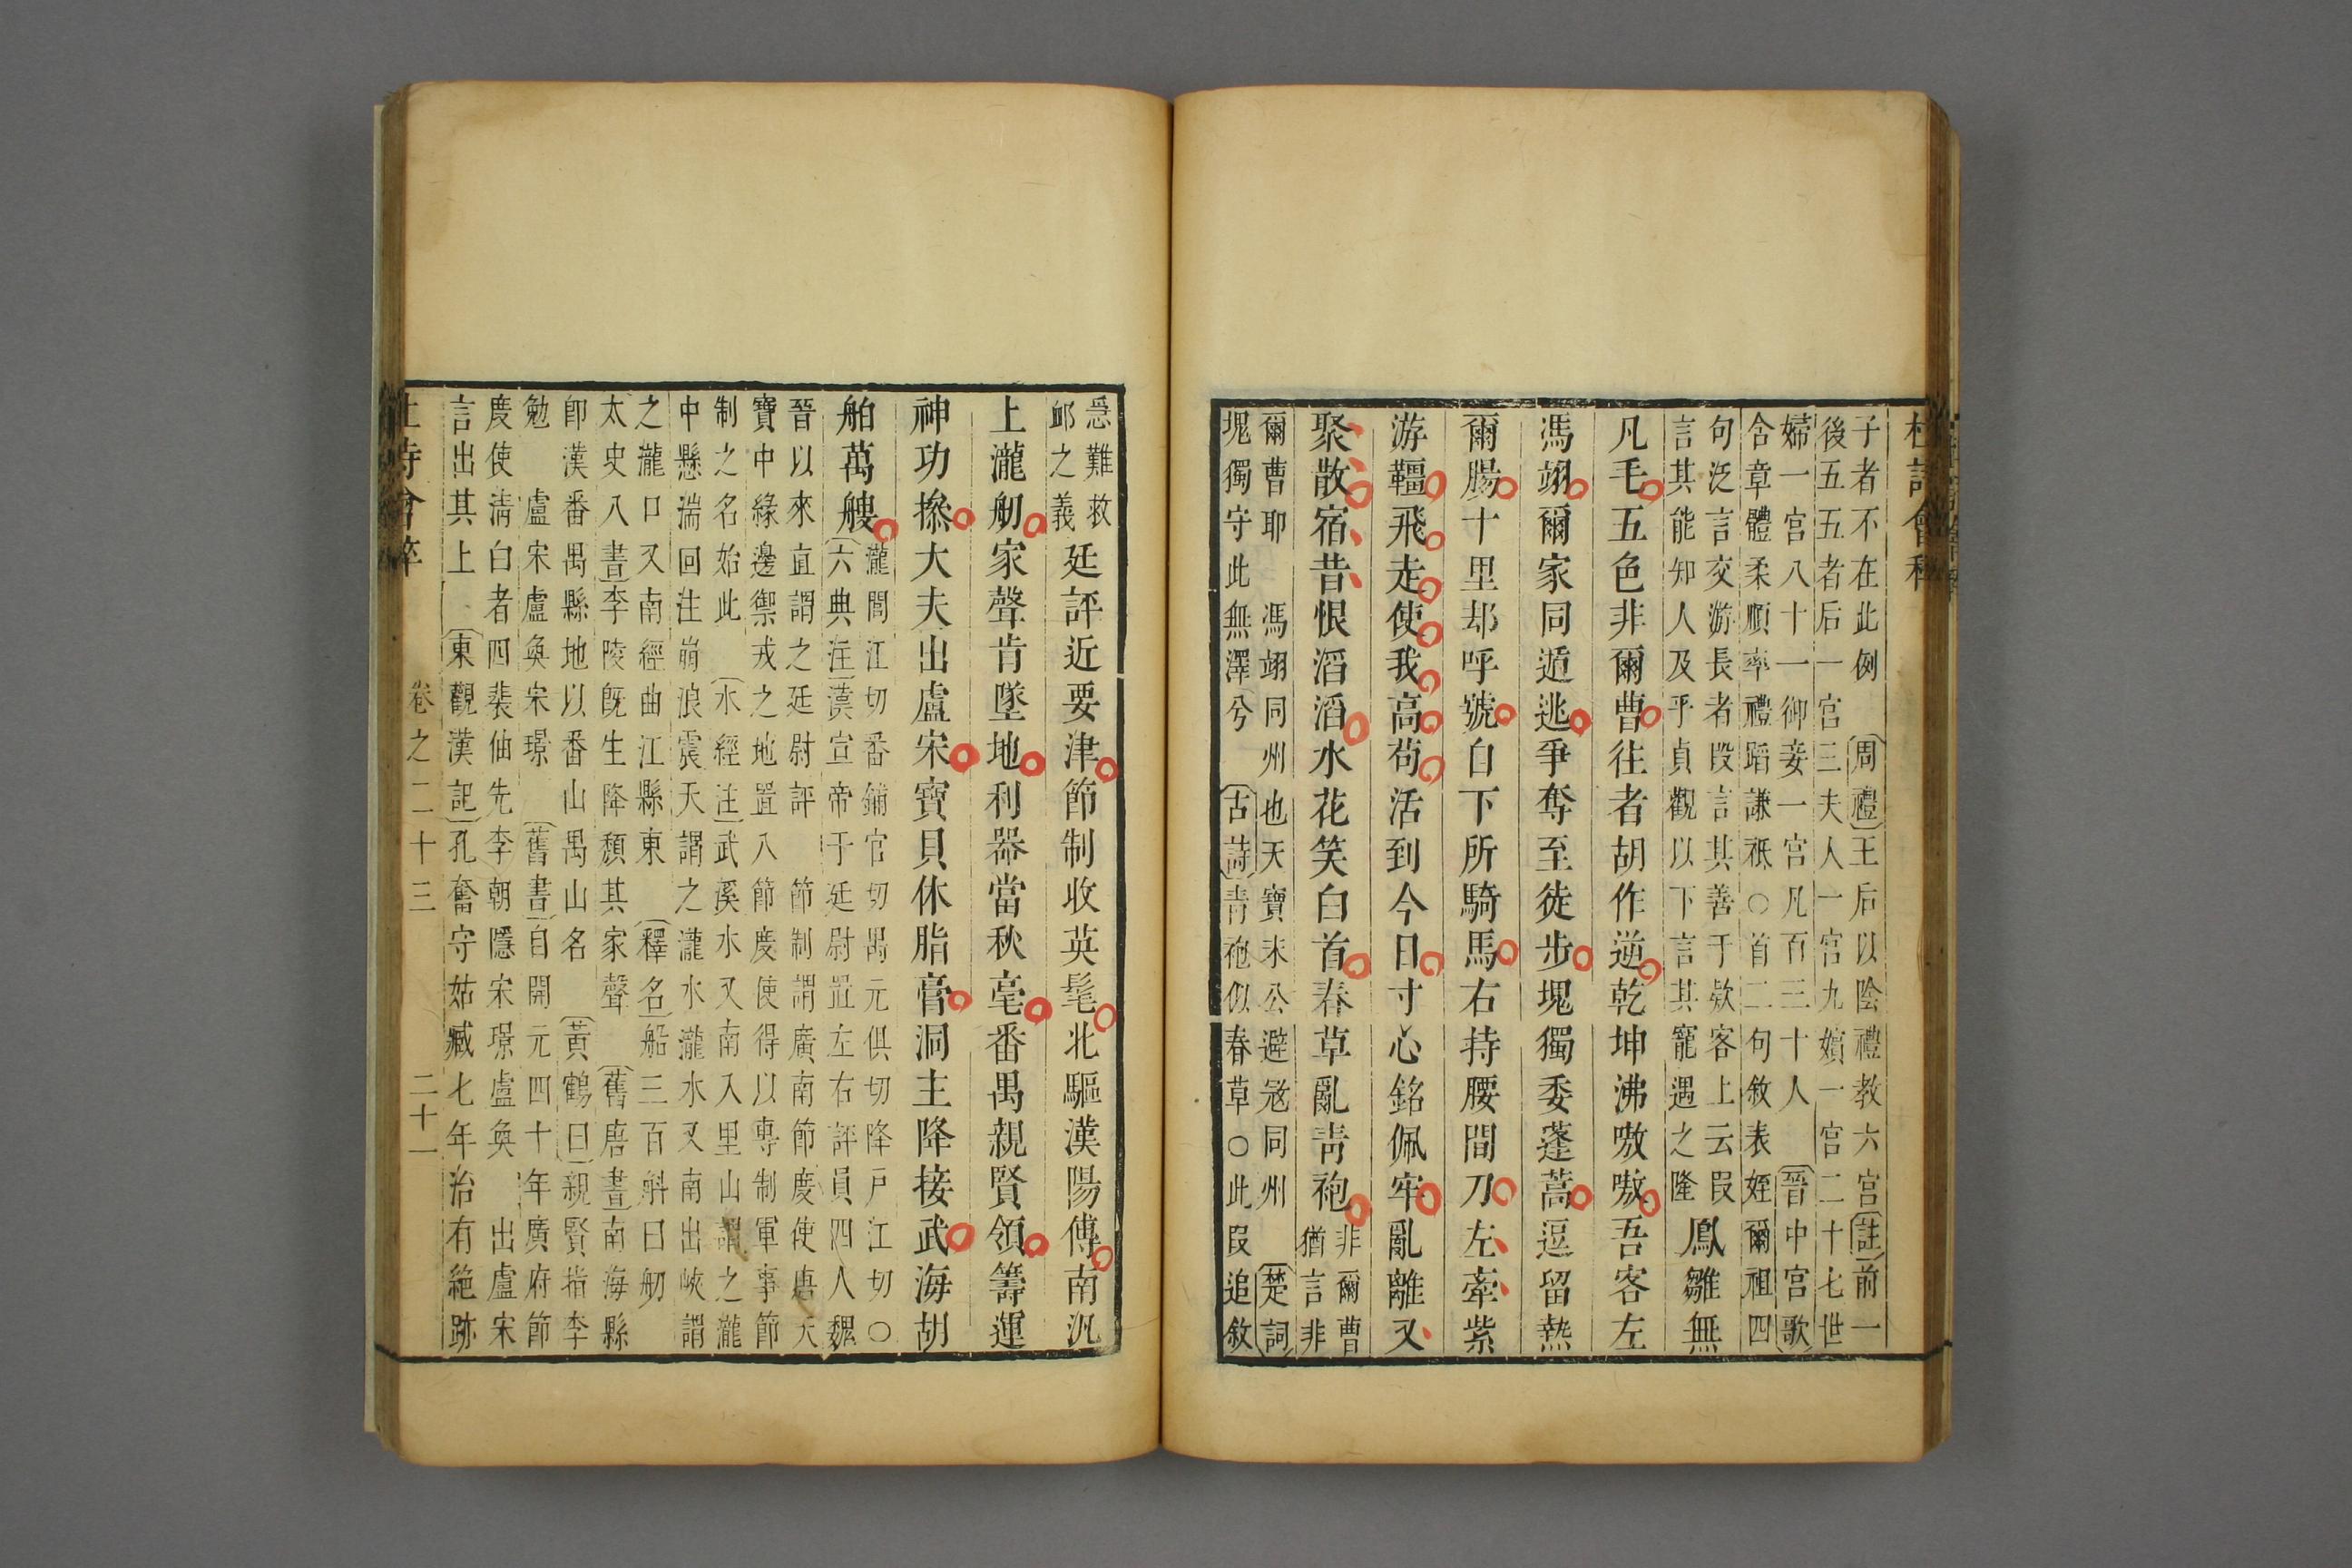 杜詩會稡
子者不在此例　周禮王后以陰禮教六宮註前一
後五五者后一宮三夫人一宮九嬪一宮二十七世
婦一宮八十一御妾一宮凡百三十人　晉中宮歌
含章體柔順率禮蹈謙祗○首二句敘表姪爾祖四
句泛言交游長者叚言其善于欵客上云叚
言其能知人及乎貞觀以下言其寵遇之隆
鳳雛無
凡毛五色非爾曹往者胡作逆乾坤沸嗷嗷吾客左
馮翊爾家同遁逃爭奪至徒步塊獨委蓬蒿逗留熱
爾腸十里却呼號自下所騎馬右持腰間刀左牽紫
游韁飛走使我高苟活到今日寸心銘佩牢亂離又
聚散宿昔恨滔滔水花笑白首春草亂靑袍
非爾曹
猶言非
爾曹耶　馮翊同州也天寶末公避冦同州　楚詞
塊獨守此無澤兮　古詩靑袍似春草○此叚追敘
急難救
邮之義
廷評近要津節制收英髦北驅漢陽傅南汎
上瀧舠家聲肯墜地利器當秋毫番禺親賢領籌運
神功操大夫出盧宋寶貝休脂膏洞主降接武海胡
舶萬艘
瀧閭江切番鋪官切禺元俱切降戸江切○
六典注漢宣帝于廷尉置左右評員四人魏
晉以來直謂之廷尉評　節制謂廣南節度使唐天
寶中緣邊禦戎之地置八節度使得以專制軍事節
制之名始此　水經注武溪水又南入里山謂之瀧
中懸湍回注崩浪震天謂之瀧水瀧水又南出峽謂
之瀧口又南經曲江縣東　釋名船三百斛曰舠
太史公書李陵旣生降頹其家聲　舊唐書南海縣
卽漢番禺縣地以番山禺山名　黃鶴曰親賢指李
勉　盧宋盧奐宋璟　舊書自開元四十年廣府節
度使淸白者四裴伷先李朝隱宋璟盧奐　出盧宋
言出其上　東觀漢記孔奮守姑臧七年治有絶跡
杜詩會稡　卷之二十三　二十一